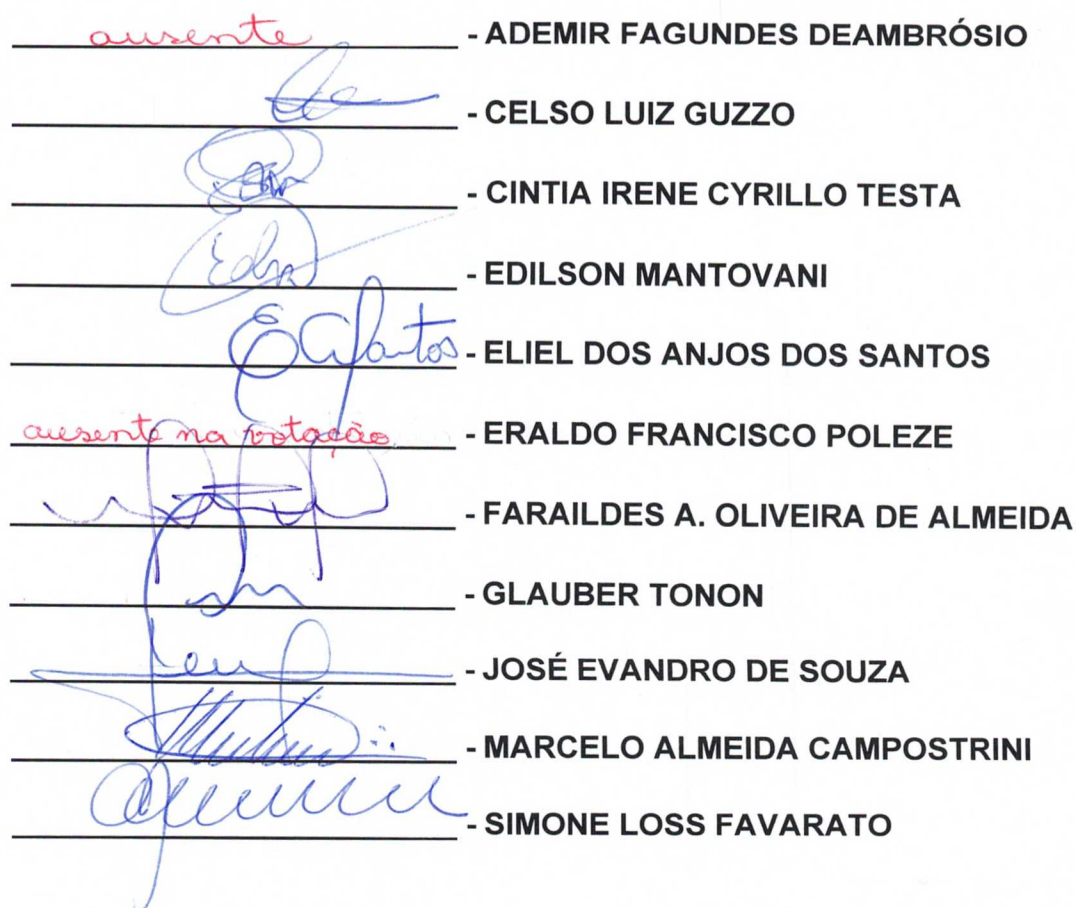 ausente - ADEMIR FAGUNDES DEAMBRÓSIO
- CELSO LUIZ GUZZO
- CINTIA IRENE CYRILLO TESTA
- EDILSON MANTOVANI
EASantos - ELIEL DOS ANJOS DOS SANTOS
ausente na votação - ERALDO FRANCISCO POLEZE
- FARAILDES A. OLIVEIRA DE ALMEIDA
- GLAUBER TONON
- JOSÉ EVANDRO DE SOUZA
- MARCELO ALMEIDA CAMPOSTRINI
- SIMONE LOSS FAVARATO